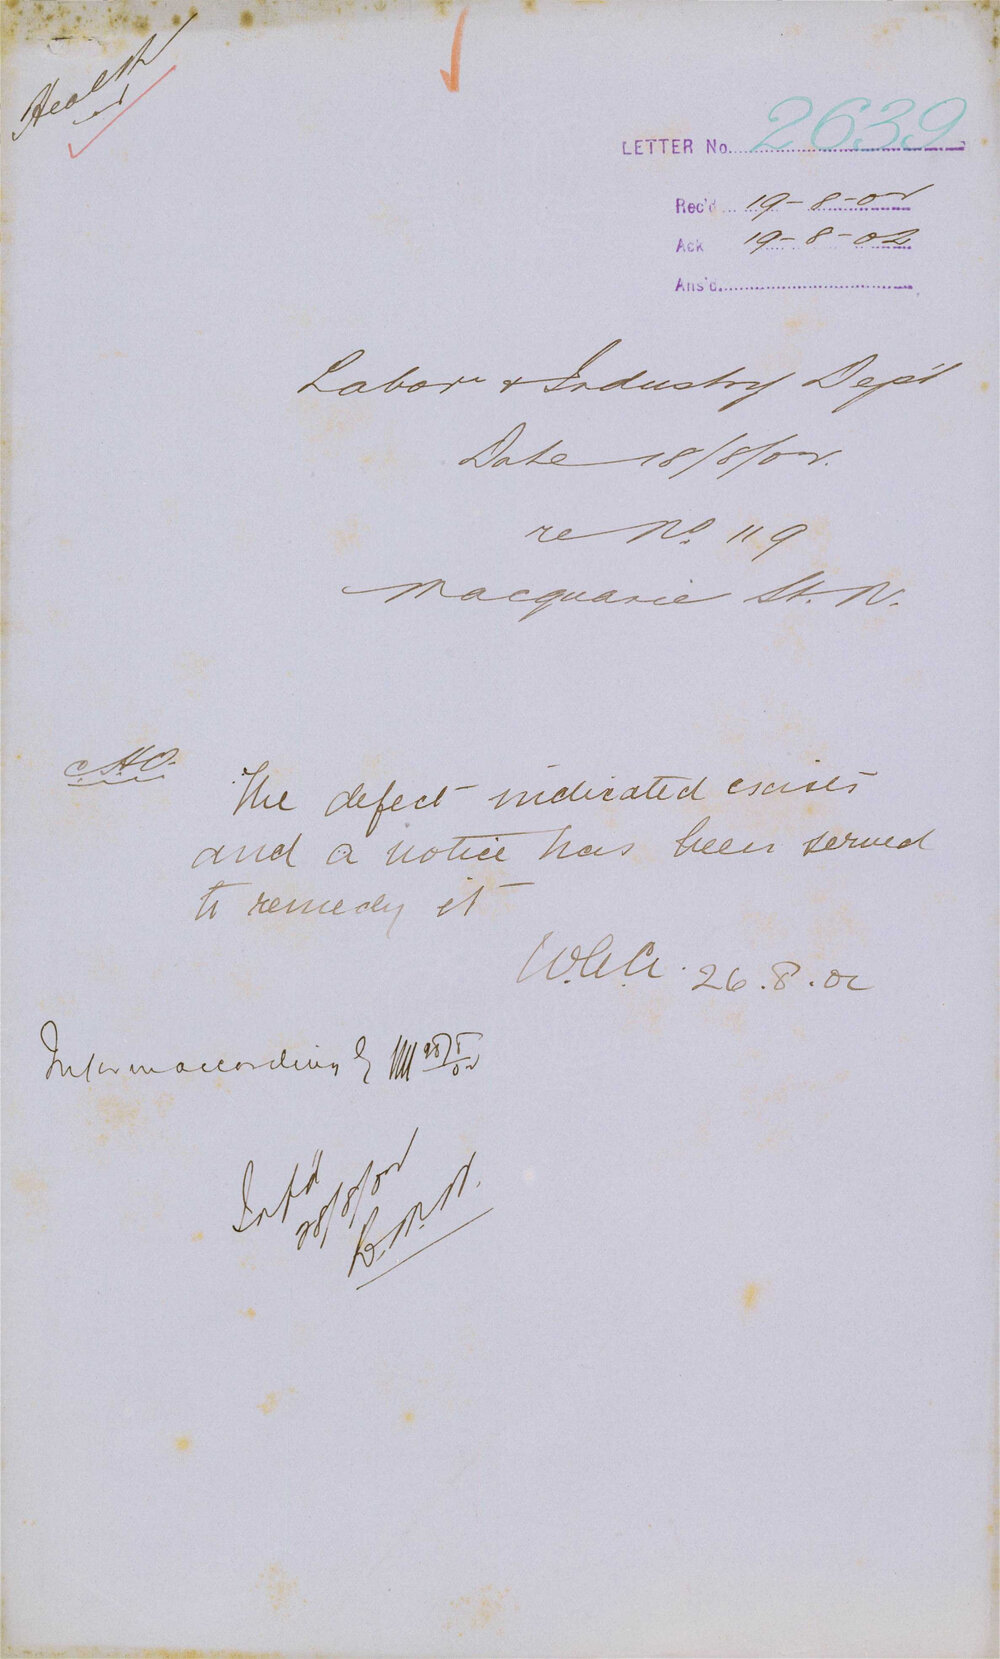 Health
LETTER No. 2639
Rec'd 19-8-02
Ack 19-8-02
Ans'd.
Labor & Industry Dep't
Date 18/8/02.
re No. 119
Macquarie St. N.
C.H.O.
The defect indicated exists
and a notice has been served
to remedy it
26.8.02
Inform accordingly
Inf'd
28/8/02